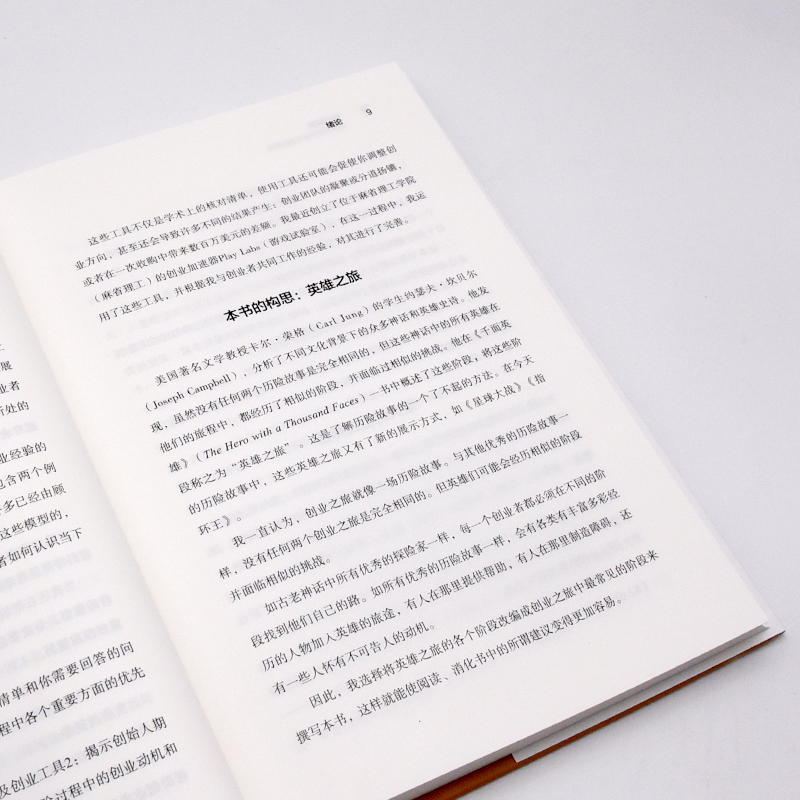 展
业者
所处的
业经验的
包含两个例
多已经由顾
这些模型的，
者如何认识当下
清单和你需要回答的问
程中各个重要方面的优先
及创业工具2：揭示创始人期
验过程中的创业动机和
绪论 9
这些工具不仅是学术上的核对清单，使用工具还可能会促使你调整创
业方向，甚至还会导致许多不同的结果产生：创业团队的凝聚或分道扬镳，
或者在一次收购中带来数百万美元的差额。我最近创立了位于麻省理工学院
（麻省理工）的创业加速器Play Labs（游戏试验室），在这一过程中，我运
用了这些工具，并根据我与创业者共同工作的经验，对其进行了完善。
本书的构思：英雄之旅
美国著名文学教授卡尔·荣格（Carl Jung）的学生约瑟夫·坎贝尔
（Joseph Campbell），分析了不同文化背景下的众多神话和英雄史诗。他发
现，虽然没有任何两个历险故事是完全相同的，但这些神话中的所有英雄在
他们的旅程中，都经历了相似的阶段，并面临过相似的挑战。他在《千面英
雄》（The Hero with a Thousand Faces）一书中概述了这些阶段，将这些阶
段称之为“英雄之旅”。这是了解历险故事的一个了不起的方法。在今天
的历险故事中，这些英雄之旅又有了新的展示方式，如《星球大战》《指
环王》。
我一直认为，创业之旅就像一场历险故事。与其他优秀的历险故事一
样，没有任何两个创业之旅是完全相同的。但英雄们可能会经历相似的阶段
并面临相似的挑战。
如古老神话中所有优秀的探险家一样，每一个创业者都必须在不同的阶
段找到他们自己的路。如所有优秀的历险故事一样，会有各类有丰富多彩经
历的人物加入英雄的旅途，有人在那里提供帮助，有人在那里制造障碍，还
有一些人怀有不可告人的动机。
因此，我选择将英雄之旅的各个阶段改编成创业之旅中最常见的阶段来
撰写本书，这样就能使阅读、消化书中的所谓建议变得更加容易。